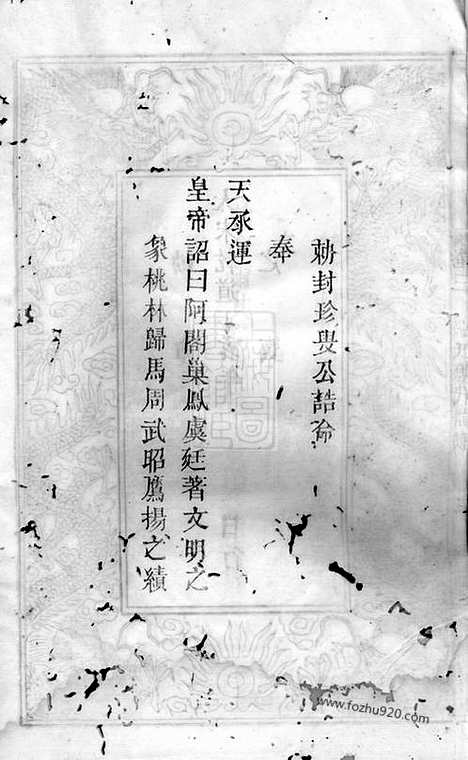 勅封珍叟公誥命
奉
天承運
皇帝詔曰阿閣巢鳳虞廷著文明之
象桃林歸馬周武昭鷹揚之績
www.fozhu920.com